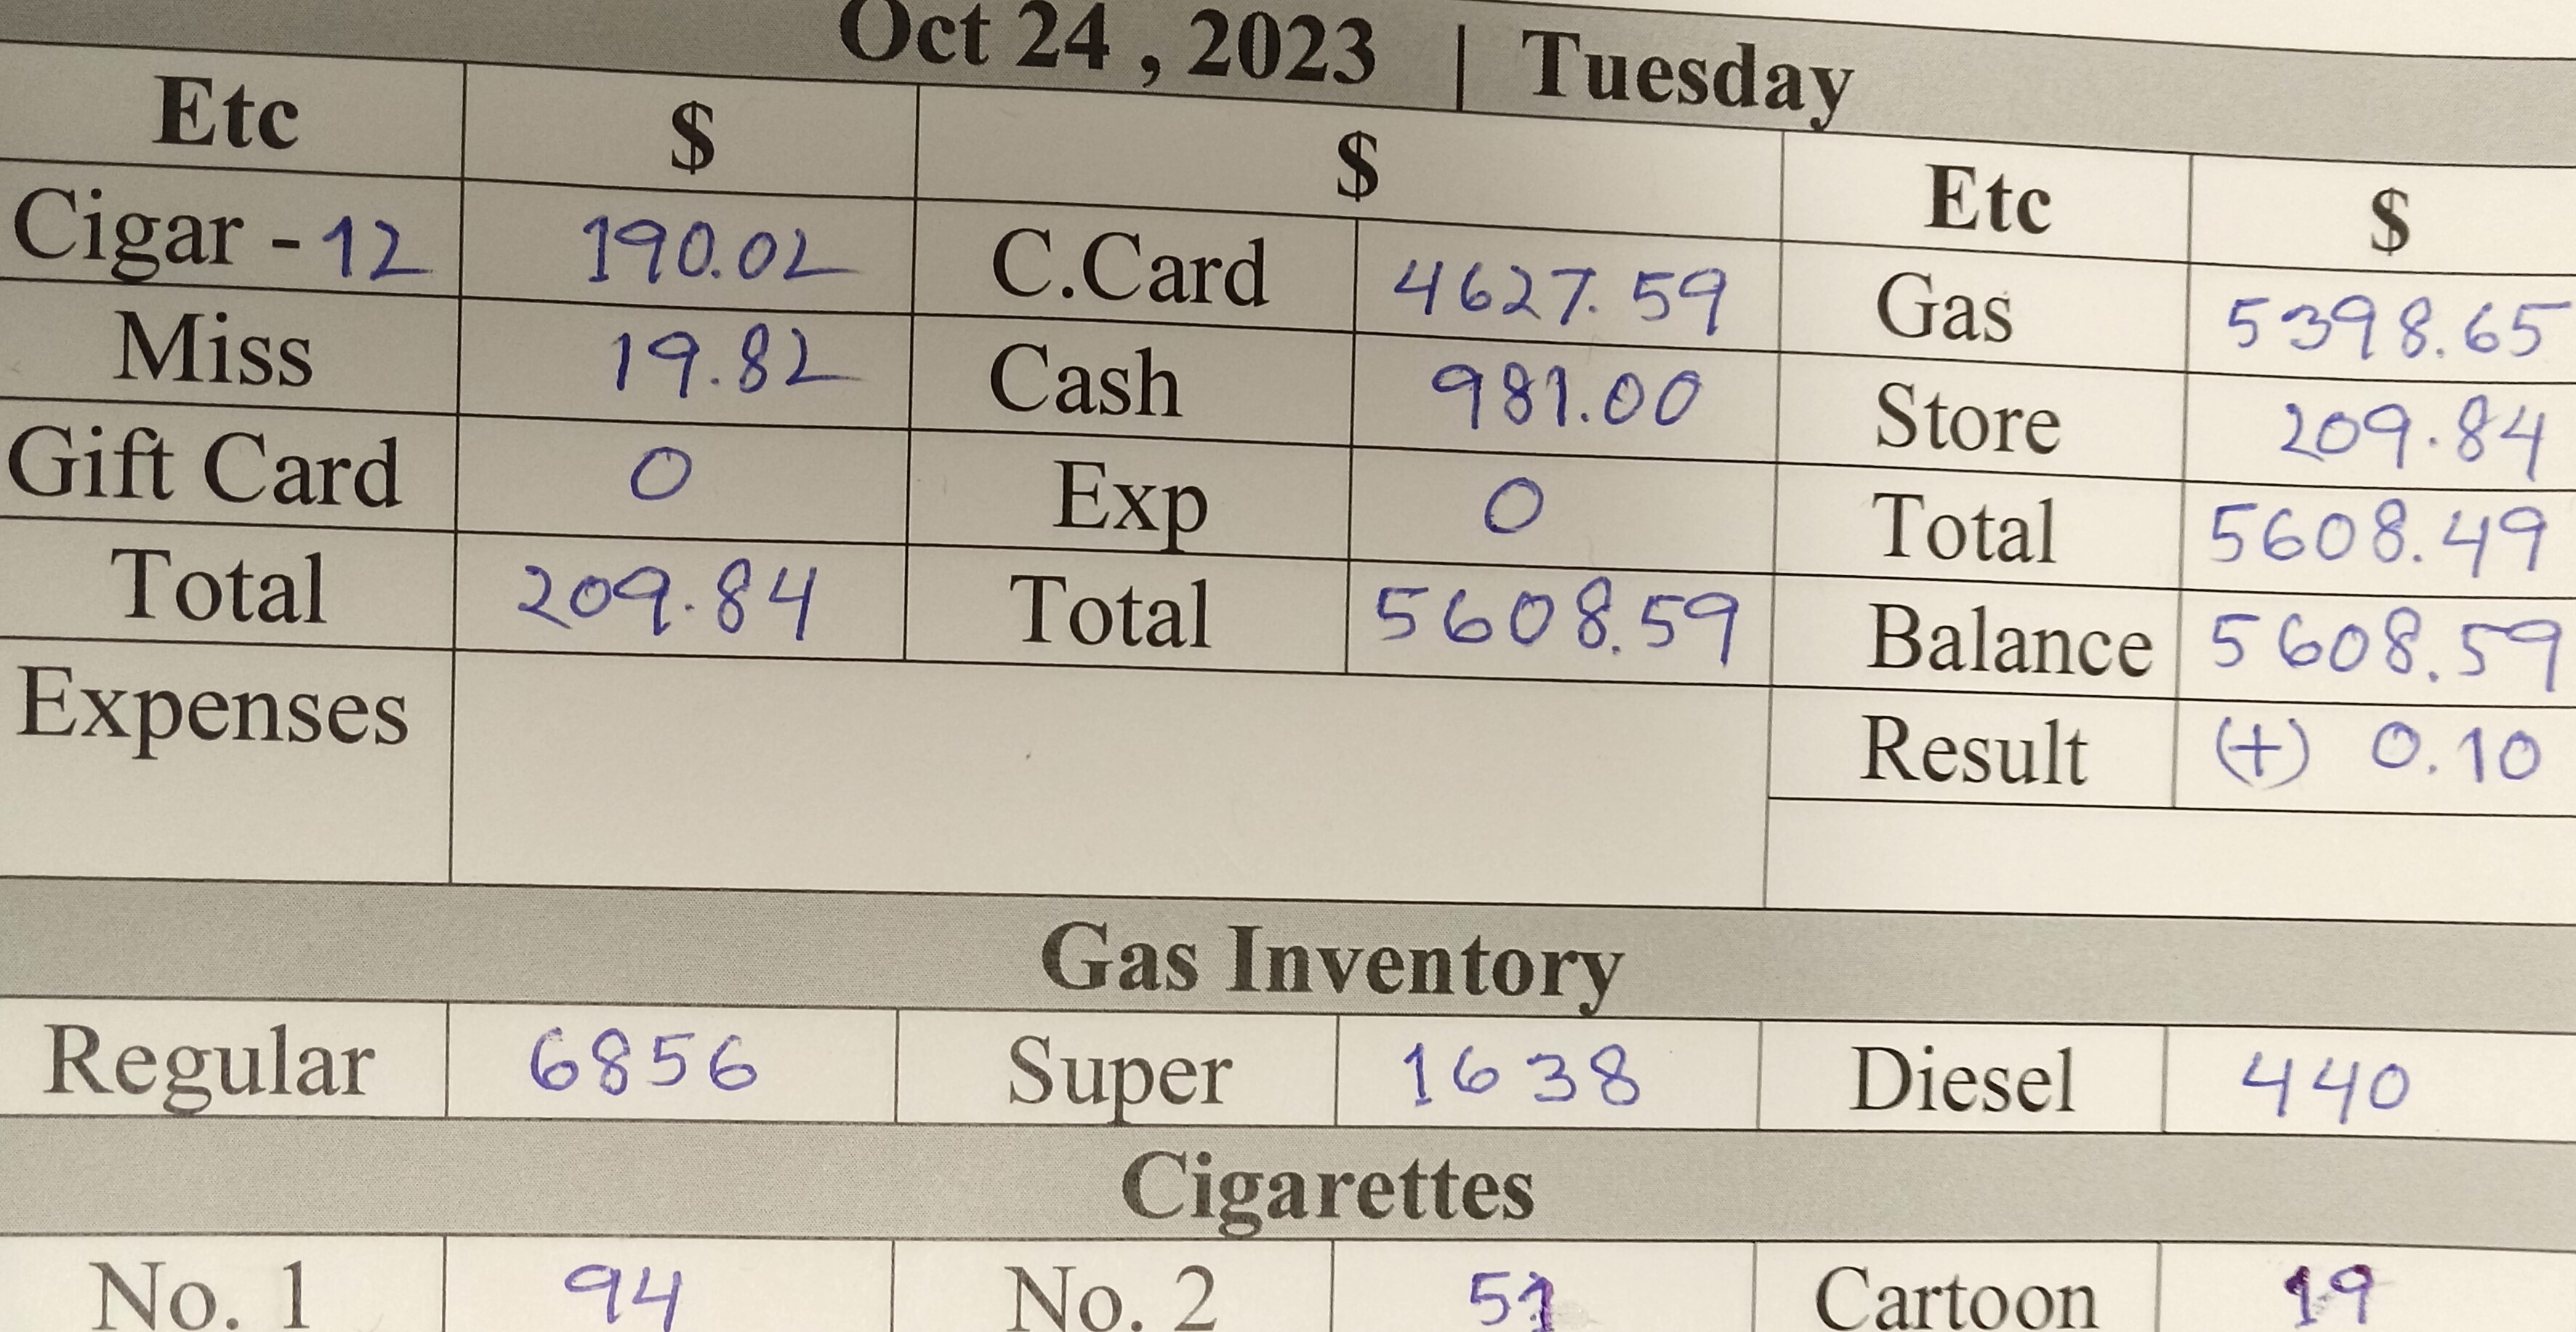 Oct 24 , 2023 | Tuesday
Etc $ $ Etc $
Cigar - 12 190.02 C.Card 4627.59 Gas 5398.65
Miss 19.82 Cash 981.00 Store 209.84
Gift Card 0 Exp 0 Total 5608.49
Total 209.84 Total 5608.59 Balance 5608.59
Expenses Result (+) 0.10
Gas Inventory
Regular 6856 Super 1638 Diesel 440
Cigarettes
No. 1 94 No. 2 51 Cartoon 19